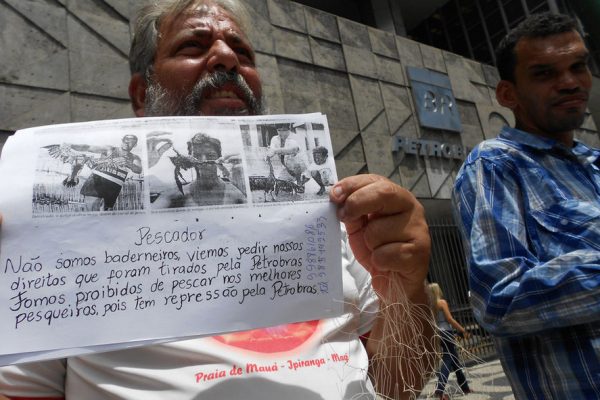 BR
PETROBR
Pescador
Não somos baderneiros, viemos pedir nossos
direitos que foram tirados pela Petrobras
Fomos proibidos de pescar nos melhores
pesqueiros, pois tem repressão pela Petrobras
Praia de Mauá - Ipiranga - Mag